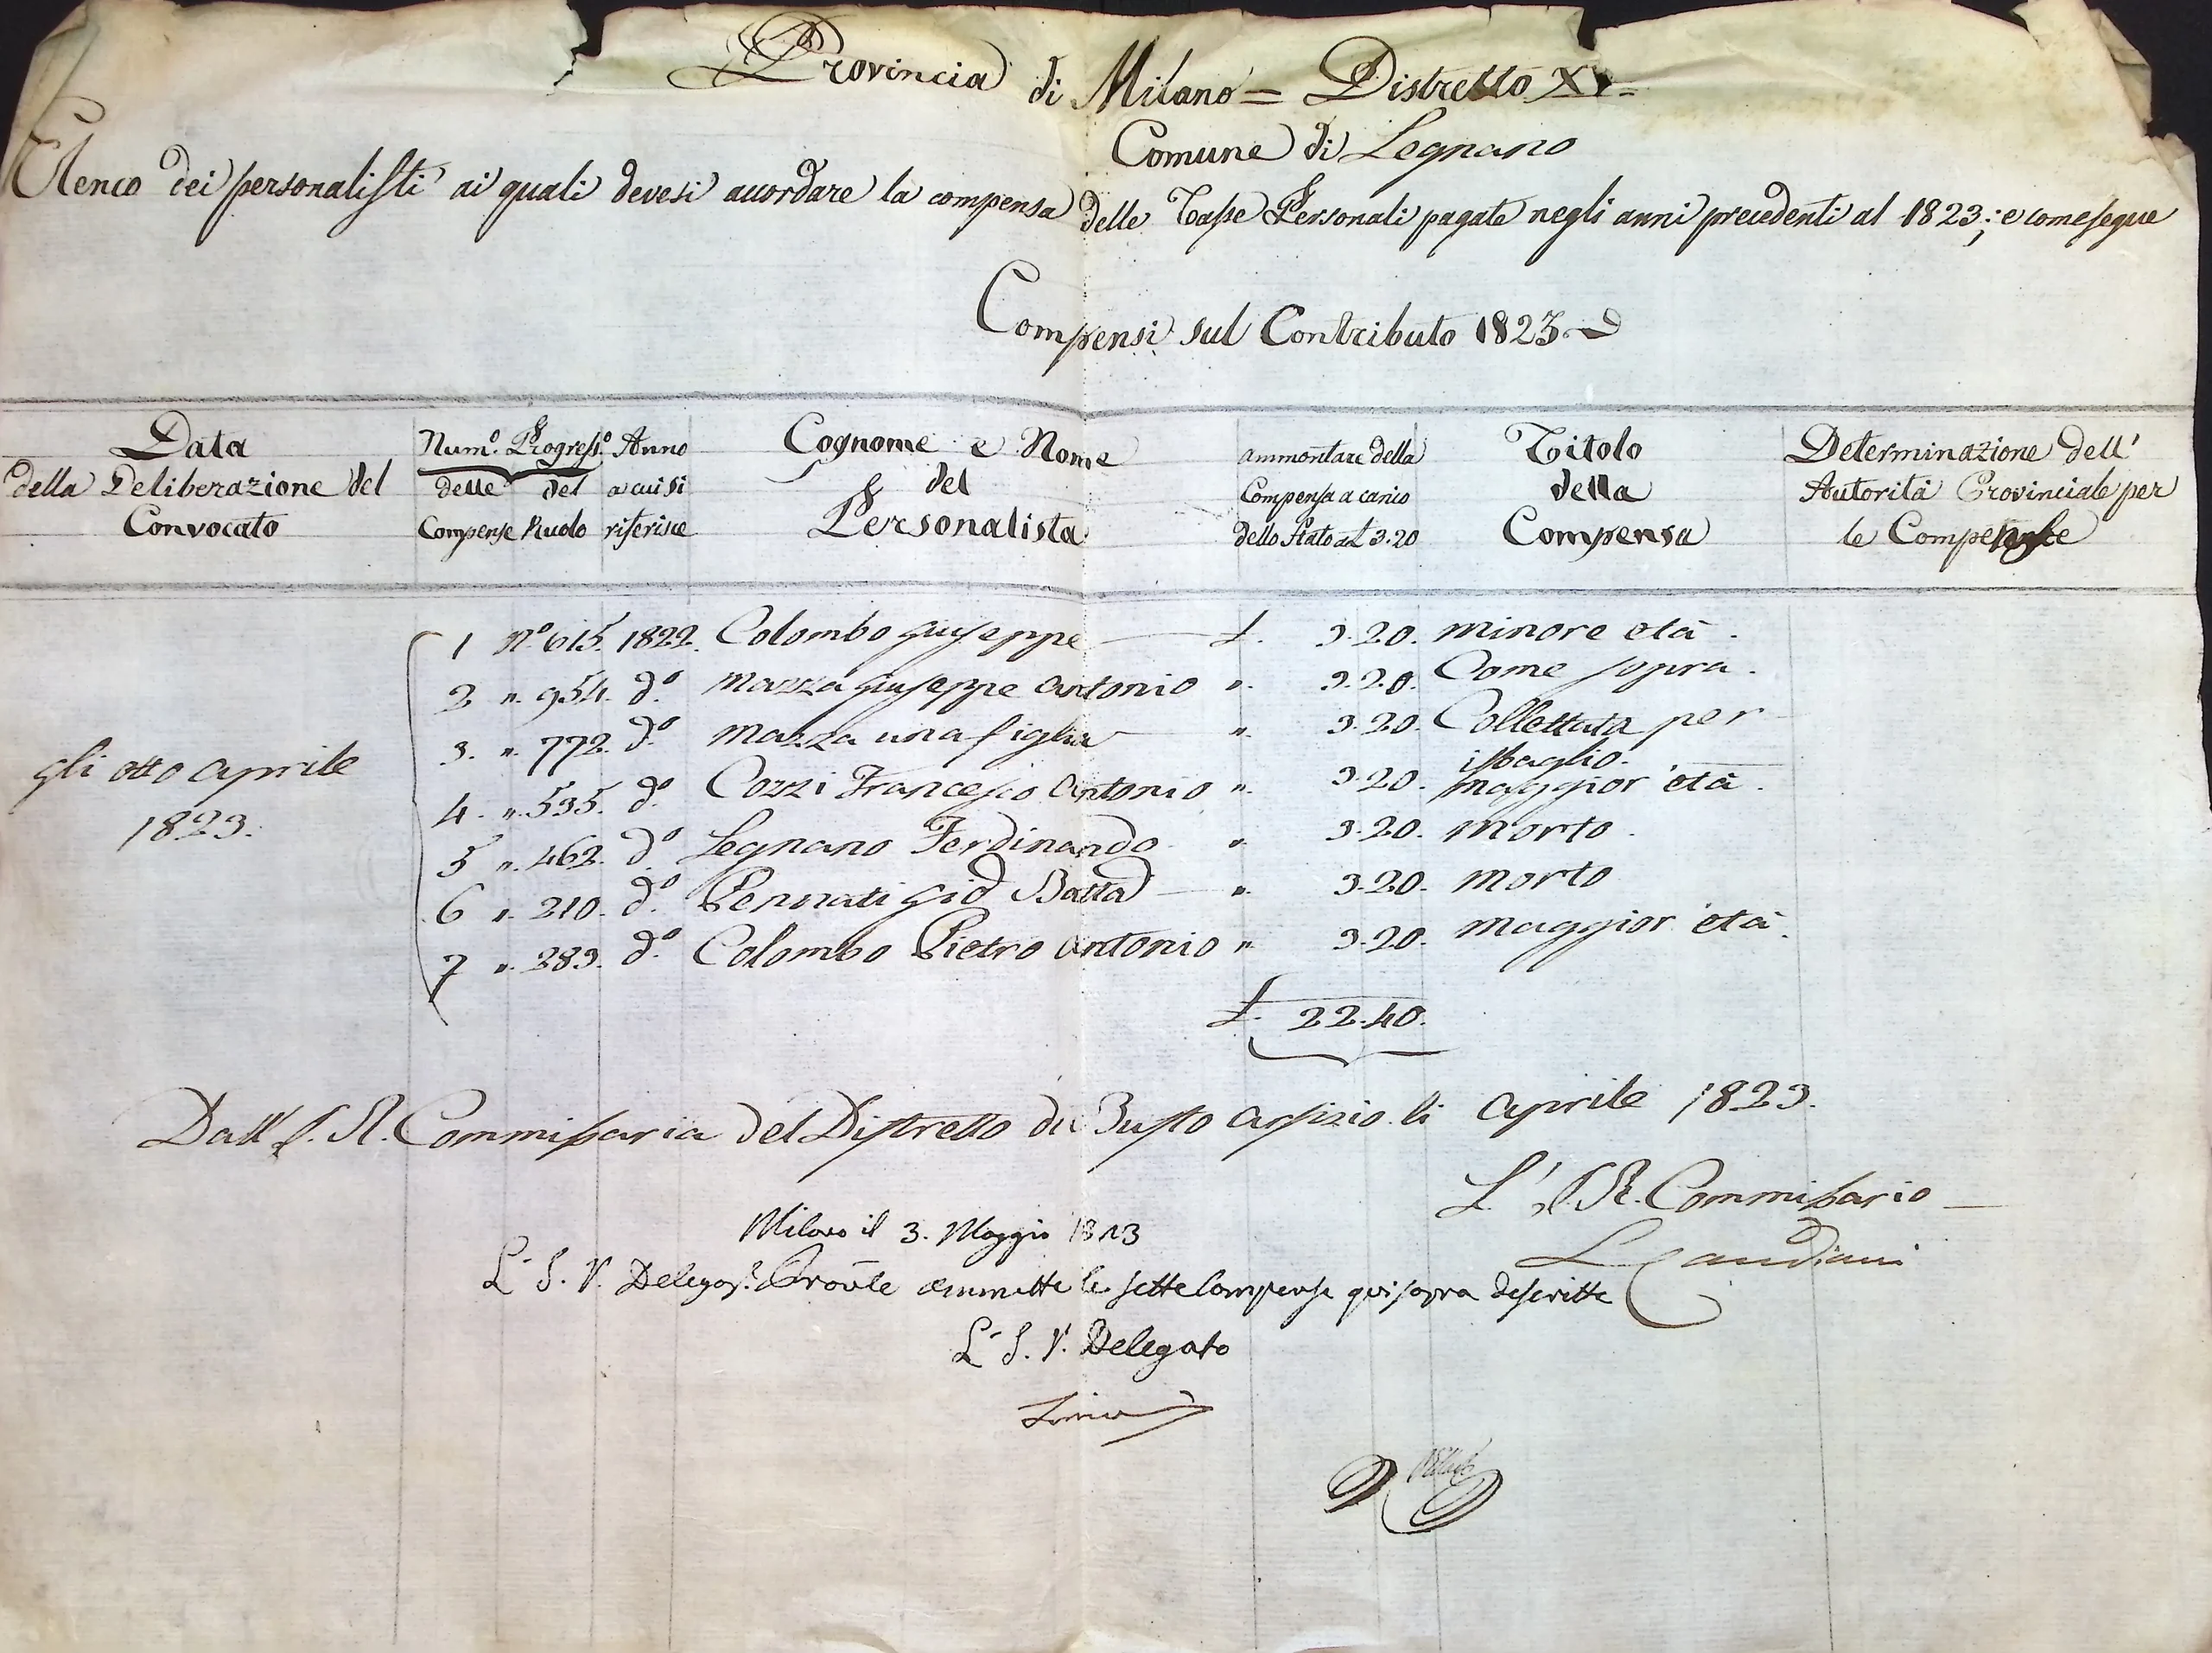 Provincia di Milano = Distretto XV =
Comune di Legnano
Elenco dei personalisti ai quali devesi accordare la compensa delle Tasse Personali pagate negli anni precedenti al 1823; e come segue
Compensi sul Contributo 1823.
Data della Deliberazione del Convocato
Num.º Progress.º
delle Compense
del Ruolo
Anno a cui si riferisce
Cognome e Nome del Personalista
ammontare della Compensa a carico dello Stato a £ 3.20
Titolo della Compensa
Determinazione dell' Autorità Provinciale per le Compense
gli otto Aprile 1823.
1 Nº 615. 1822. Colombo Giuseppe £. 3.20. minore età.
2 ". 954. dº. Mazza Giuseppe Antonio ". 3.20. Come sopra.
3. ". 772. dº. Mazza una figlia ". 3.20. Collettata per isbaglio.
4. ". 535. dº. Cozzi Francesco Antonio ". 3.20. maggior età.
5 ". 462. dº. Legnano Ferdinando ". 3.20. morto.
6 ". 210. dº. Pennati Gio Batta ". 3.20. morto
7 ". 283. dº. Colombo Pietro Antonio ". 3.20. maggior età.
£. 22.40.
Dall' I. R. Commissaria del Distretto di Busto Arsizio li Aprile 1823.
L' I. R. Commissario
Milano il 3. Maggio 1823
L' I. R. Delegaz.e Prov̄le ammette le sette Compense qui sopra descritte
L' I. R. Delegato